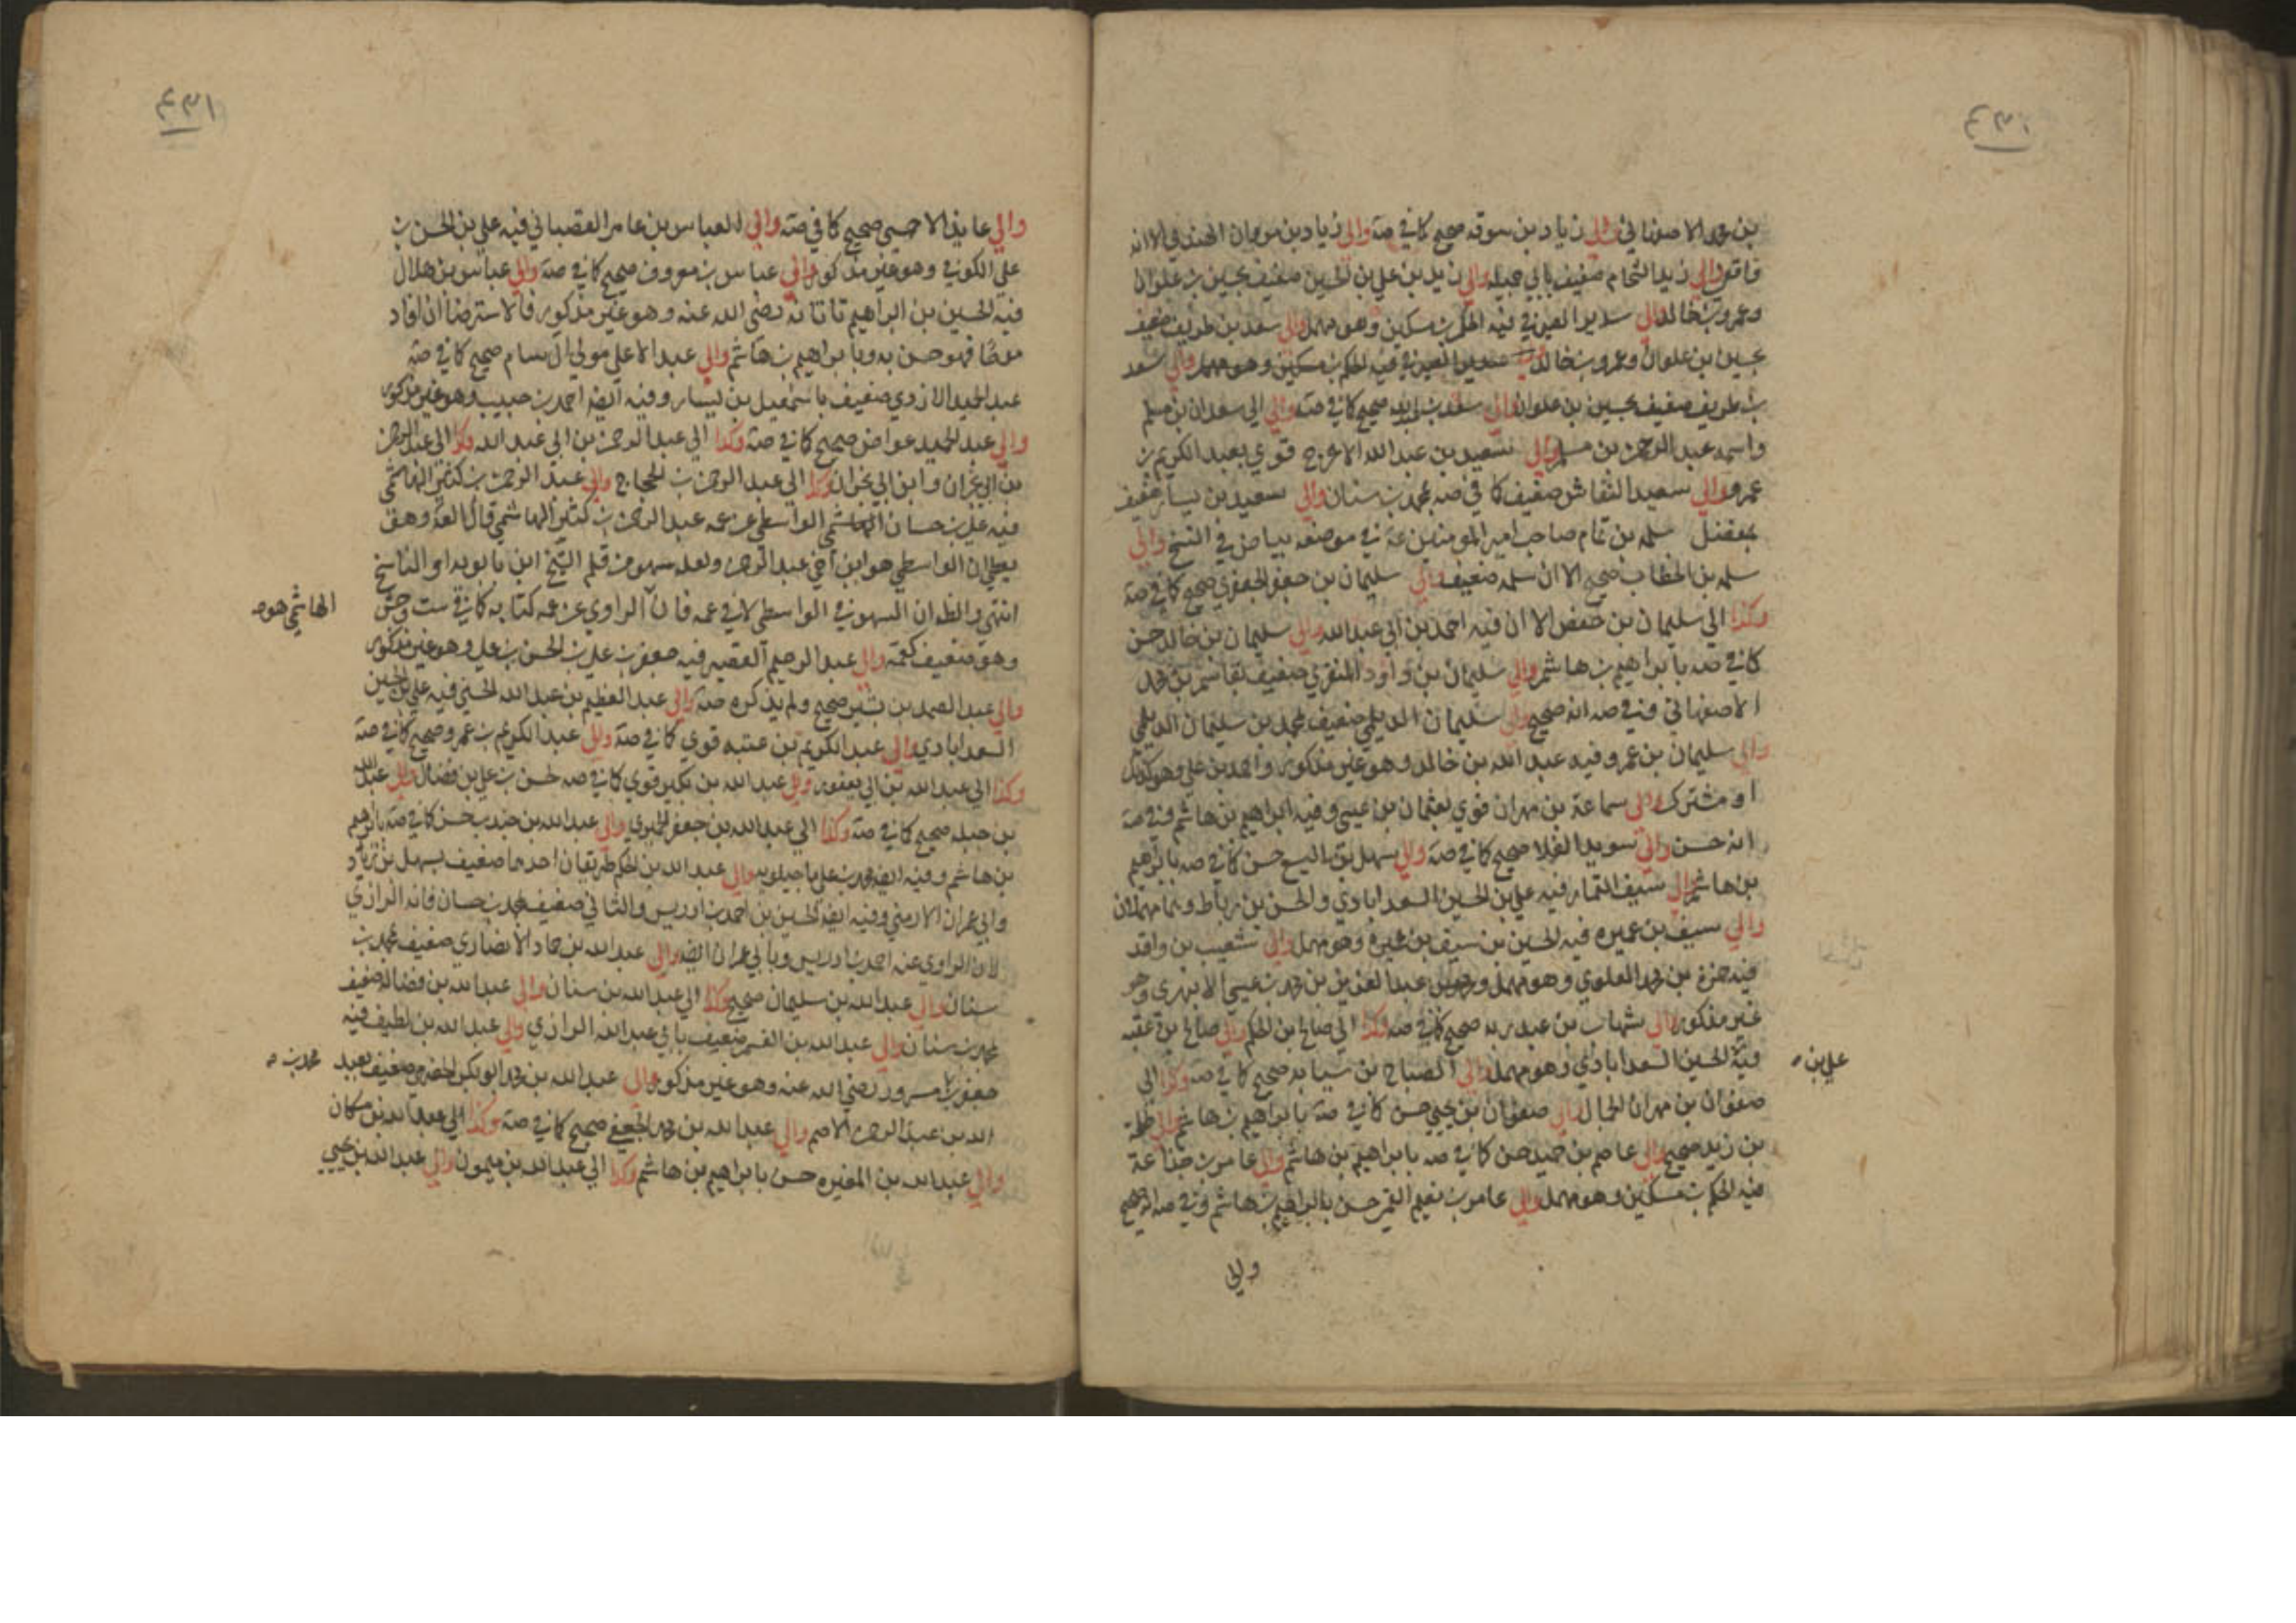 ٤٣٠
بن محمد الاصفهاني والي زياد بن سوقه صحيح كما في صة والي زياد بن مروان القندي الا انه
واقفي والي زيد الشحام ضعيف بابي جميله والي زيد بن علي بن الحسين ضعيف بحسين بن علوان
وعمرو بن خالد والي سدير الصيرفي فيه الحكم بن مسكين وهو مهمل والي سعد بن طريف ضعيف
بحسين بن علوان وعمرو بن خالد سدير الصيرفي فيه الحكم بن مسكين وهو مهمل والي سعد
بن طريف ضعيف بحسين بن علوان والي سعد بن عبد الله صحيح كما في صة والي الي سعدان بن مسلم
واسمه عبد الرحمن بن مسلم والي سعيد بن عبد الله الاعرج قوي بعبد الكريم بن
عمرو والي سعيد النقاش ضعيف كما في صه بمحمد بن سنان والي سعيد بن يسار ضعيف
بمفضل سلمه بن تمام صاحب امير المومنين ع في موضعه بياض في النسخ والي
سلمه بن الخطاب صحيح الا ان سلمه ضعيف والي سليمان بن جعفر الجعفري صحيح كما في صة
وكذا الي سليمان بن حفص الا ان فيه احمد بن ابي عبد الله والي سليمان بن خالد حسن
كما في صه بابراهيم بن هاشم والي سليمان بن داود المنقري ضعيف بقاسم بن محمد
الاصفهاني وفي صه انه صحيح والي سليمان الديلمي ضعيف بمحمد بن سليمان الديلمي
والي سليمان بن عمرو فيه عبد الله بن خالد وهو غير مذكور واحمد بن علي وهو كذلك
او مشترك والي سماعة بن مهران قوي بعثمان بن عيسي وفيه ابراهيم بن هاشم وفي صة
انه حسن والي سويد القلا صحيح كما في صة والي سهل بن اليسع حسن كما في صه بابراهيم
بن هاشم والي سيف التمار فيه علي بن الحسين السعدابادي والحسن بن رباط وهما مهملان
والي سيف بن عميره فيه الحسين بن سيف بن عميرة وهو مهمل والي شعيب بن واقد
فيه حمزة بن محمد العلوي وهو مهمل وعبد العزيز بن محمد بن عيسي الابهري وهو
غير مذكور والي شهاب بن عبد ربه صحيح كما في صه وكذا الي صالح بن الحكم والي صالح بن عقبه
فيه الحسين السعدابادي وهو مهمل والي الصباح بن سيابه صحيح كما في صه وكذا الي
علي بن صه
صفوان بن مهران الجمال والي صفوان بن يحيي حسن كما في صة بابراهيم بن هاشم والي طلحة
بن زيد صحيح والي عاصم بن حميد حسن كما في صه بابراهيم بن هاشم والي عامر بن جذاعة
فيه الحكم بن مسكين وهو مهمل والي عامر بن نعيم القمي حسن بابراهيم بن هاشم وفي صه انه صحيح
والي
٤٣١
والي عايذ الاحمسي صحيح كما في صة والي العباس بن عامر القصباني فيه علي بن الحسن بن
علي الكوفي وهو غير مذكور والي عباس بن معروف صحيح كما في صة والي عباس بن هلال
فيه الحسين بن ابراهيم تاتانه رضي الله عنه وهو غير مذكور فالاسترضا ان افاد
مدحا فهو حسن به وبابراهيم بن هاشم والي عبد الاعلي مولي ال سام صحيح كما في صة
عبد الحميد الازدي ضعيف باسمعيل بن يسار وفيه ايضا احمد بن حبيب وهو غير مذكور
والي عبد الحميد عواض صحيح كما في صة وكذا الي عبد الرحمن بن ابي عبد الله وكذا الي عبد الرحمن
بن ابي نجران وابن ابي نجران وكذا الي عبد الرحمن بن الحجاج والي عبد الرحمن بن كثير الهاشمي
فيه علي بن حسان الهاشمي الواسطي عن عمه عبد الرحمن بن كثير الهاشمي قال العلا وهو
يعطي ان الواسطي هو ابن اخي عبد الرحمن ولعله سهو من قلم الشيخ ابن بابويه او الناسخ
انتهي والظ ان السهو في الواسطي لا في عمه فان الراوي عن عمه كتابه كما في ست وجش
الهاشمي هو صه
وهو ضعيف كعمه والي عبد الرحيم القصير فيه جعفر بن علي بن الحسن بن علي وهو غير مذكور
والي عبد الصمد بن بشير صحيح ولم يذكره صة والي عبد العظيم بن عبد الله الحسني فيه علي بن الحسين
السعدابادي والي عبد الكريم بن عتبه قوي كما في صة والي عبد الكريم بن عمرو صحيح كما في صة
وكذا الي عبد الله بن ابي يعفور والي عبد الله بن بكير قوي كما في صه لحسن بن علي بن فضال والي عبد الله
بن جبله صحيح كما في صة وكذا الي عبد الله بن جعفر الحميري والي عبد الله بن جندب حسن كما في صة بابراهيم
بن هاشم وفيه ايضا محمد بن علي ماجيلويه والي عبد الله بن الحكم طريقان احدهما ضعيف بسهل بن زياد
وابي عمران الارمني وفيه ايضا الحسين بن احمد بن ادريس والثاني ضعيف بمحمد بن حسان فانه الرازي
لان الراوي عنه احمد بن ادريس وبابي عمران ايضا والي عبد الله بن حماد الانصاري ضعيف بمحمد بن
سنان والي عبد الله بن سليمان صحيح وكذا الي عبد الله بن سنان والي عبد الله بن فضاله ضعيف
بمحمد بن سنان والي عبد الله بن القسم ضعيف بابي عبد الله الرازي والي عبد الله بن لطيف فيه
جعفر بن مسرور رضي الله عنه وهو غير مذكور والي عبد الله بن محمد ابو بكر الحضرمي ضعيف بعبد
محمد بن صه
الله بن عبد الرحمن الاصم والي عبد الله بن محمد الجعفي صحيح كما في صة وكذا الي عبد الله بن مسكان
والي عبد الله بن المغيره حسن بابراهيم بن هاشم وكذا الي عبد الله بن ميمون والي عبد الله بن يحيي